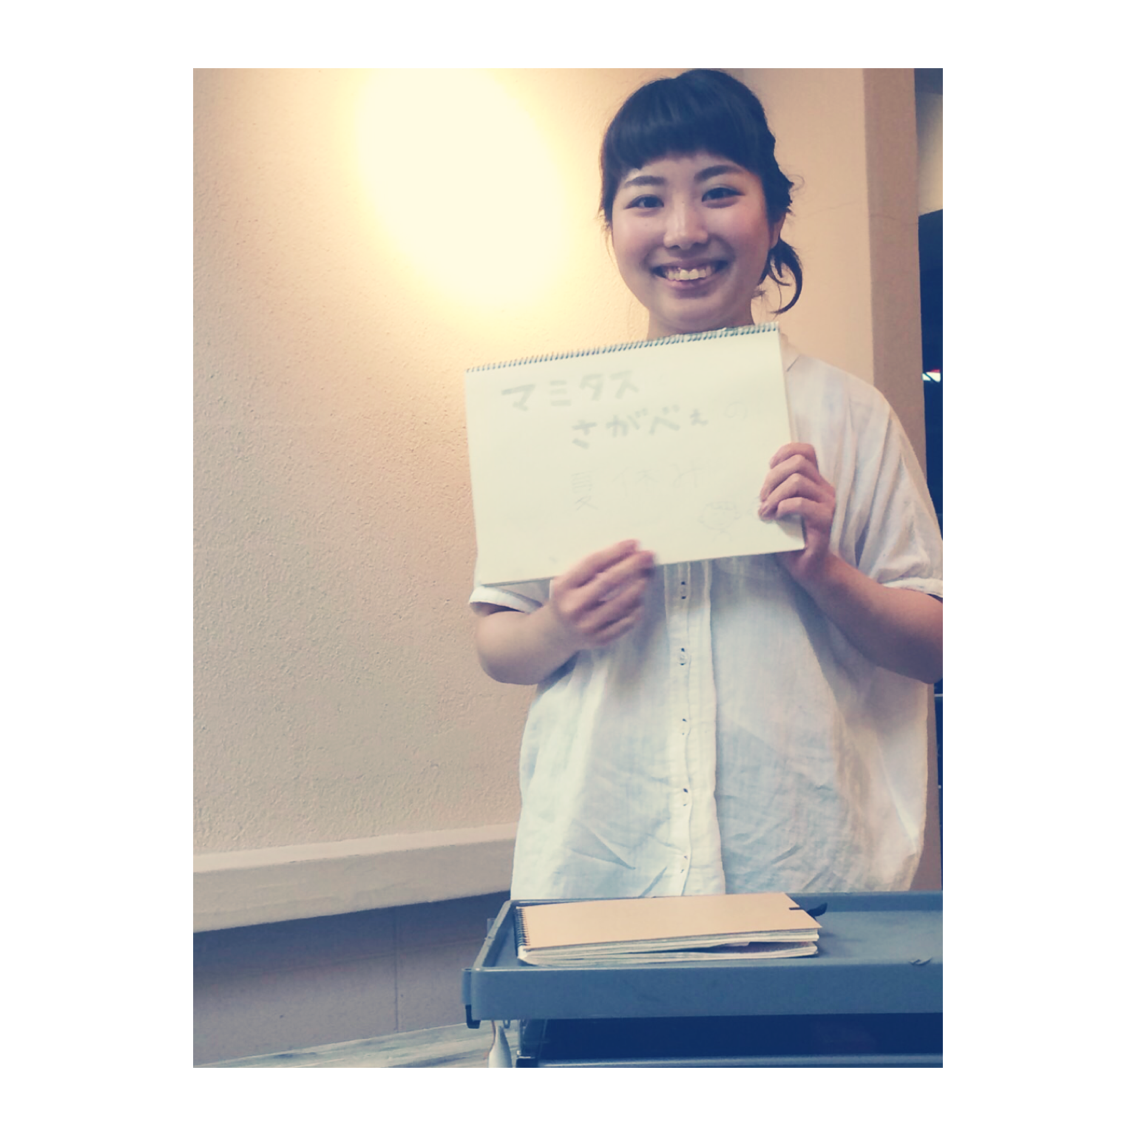 マミタス
さがべぇ の
夏休み